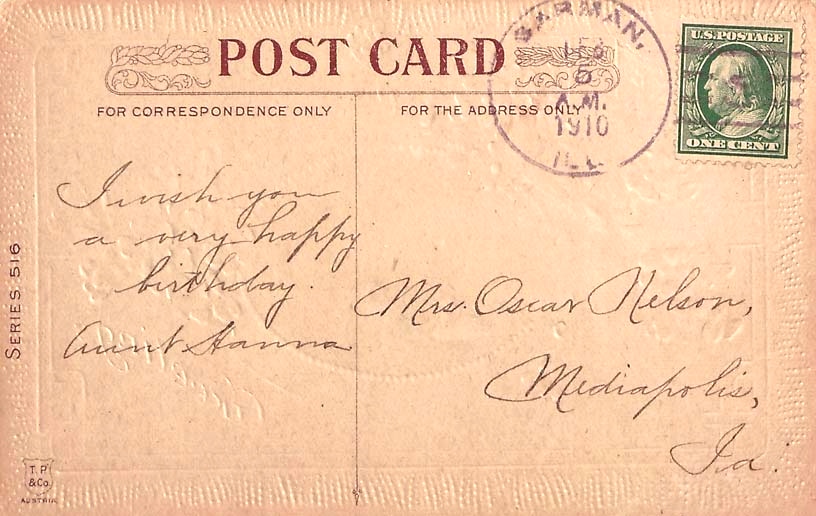 POST CARD
FOR CORRESPONDENCE ONLY
FOR THE ADDRESS ONLY
U.S. POSTAGE
ONE CENT
5
A.M.
1910
ILL.
I wish you
a very happy
birthday.
Aunt Hanna
Mrs. Oscar Nelson,
Mediapolis,
Ia.
SERIES 516
T. P.
& Co.
AUSTRIA